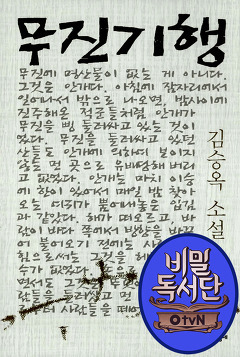 무진기행
무진에 명산물이 없는 게 아니다.
그것은 안개다. 아침에 잠자리에서
일어나서 밖으로 나오면, 밤사이에
진주해온 적군들처럼 안개가
무진을 삥 둘러싸고 있는 것이
었다. 무진을 둘러싸고 있던
산들도 안개에 의하여 보이지
않는 먼 곳으로 유배당해 버리
고 없었다. 안개는 마치 이승
에 한이 있어서 매일 밤 찾아
오는 여귀가 뿜어내놓은 입김
과 같았다. 해가 떠오르고, 바
람이 바다 쪽에서 방향을 바꾸
어 불어오기 전에는 사
힘으로써는 그것을 헤
수가 없었다.
면서도 그것은
람들을 둘러쌌고 먼
터 사람들을 떼어
김승옥 소설
비밀
독서단
OtvN